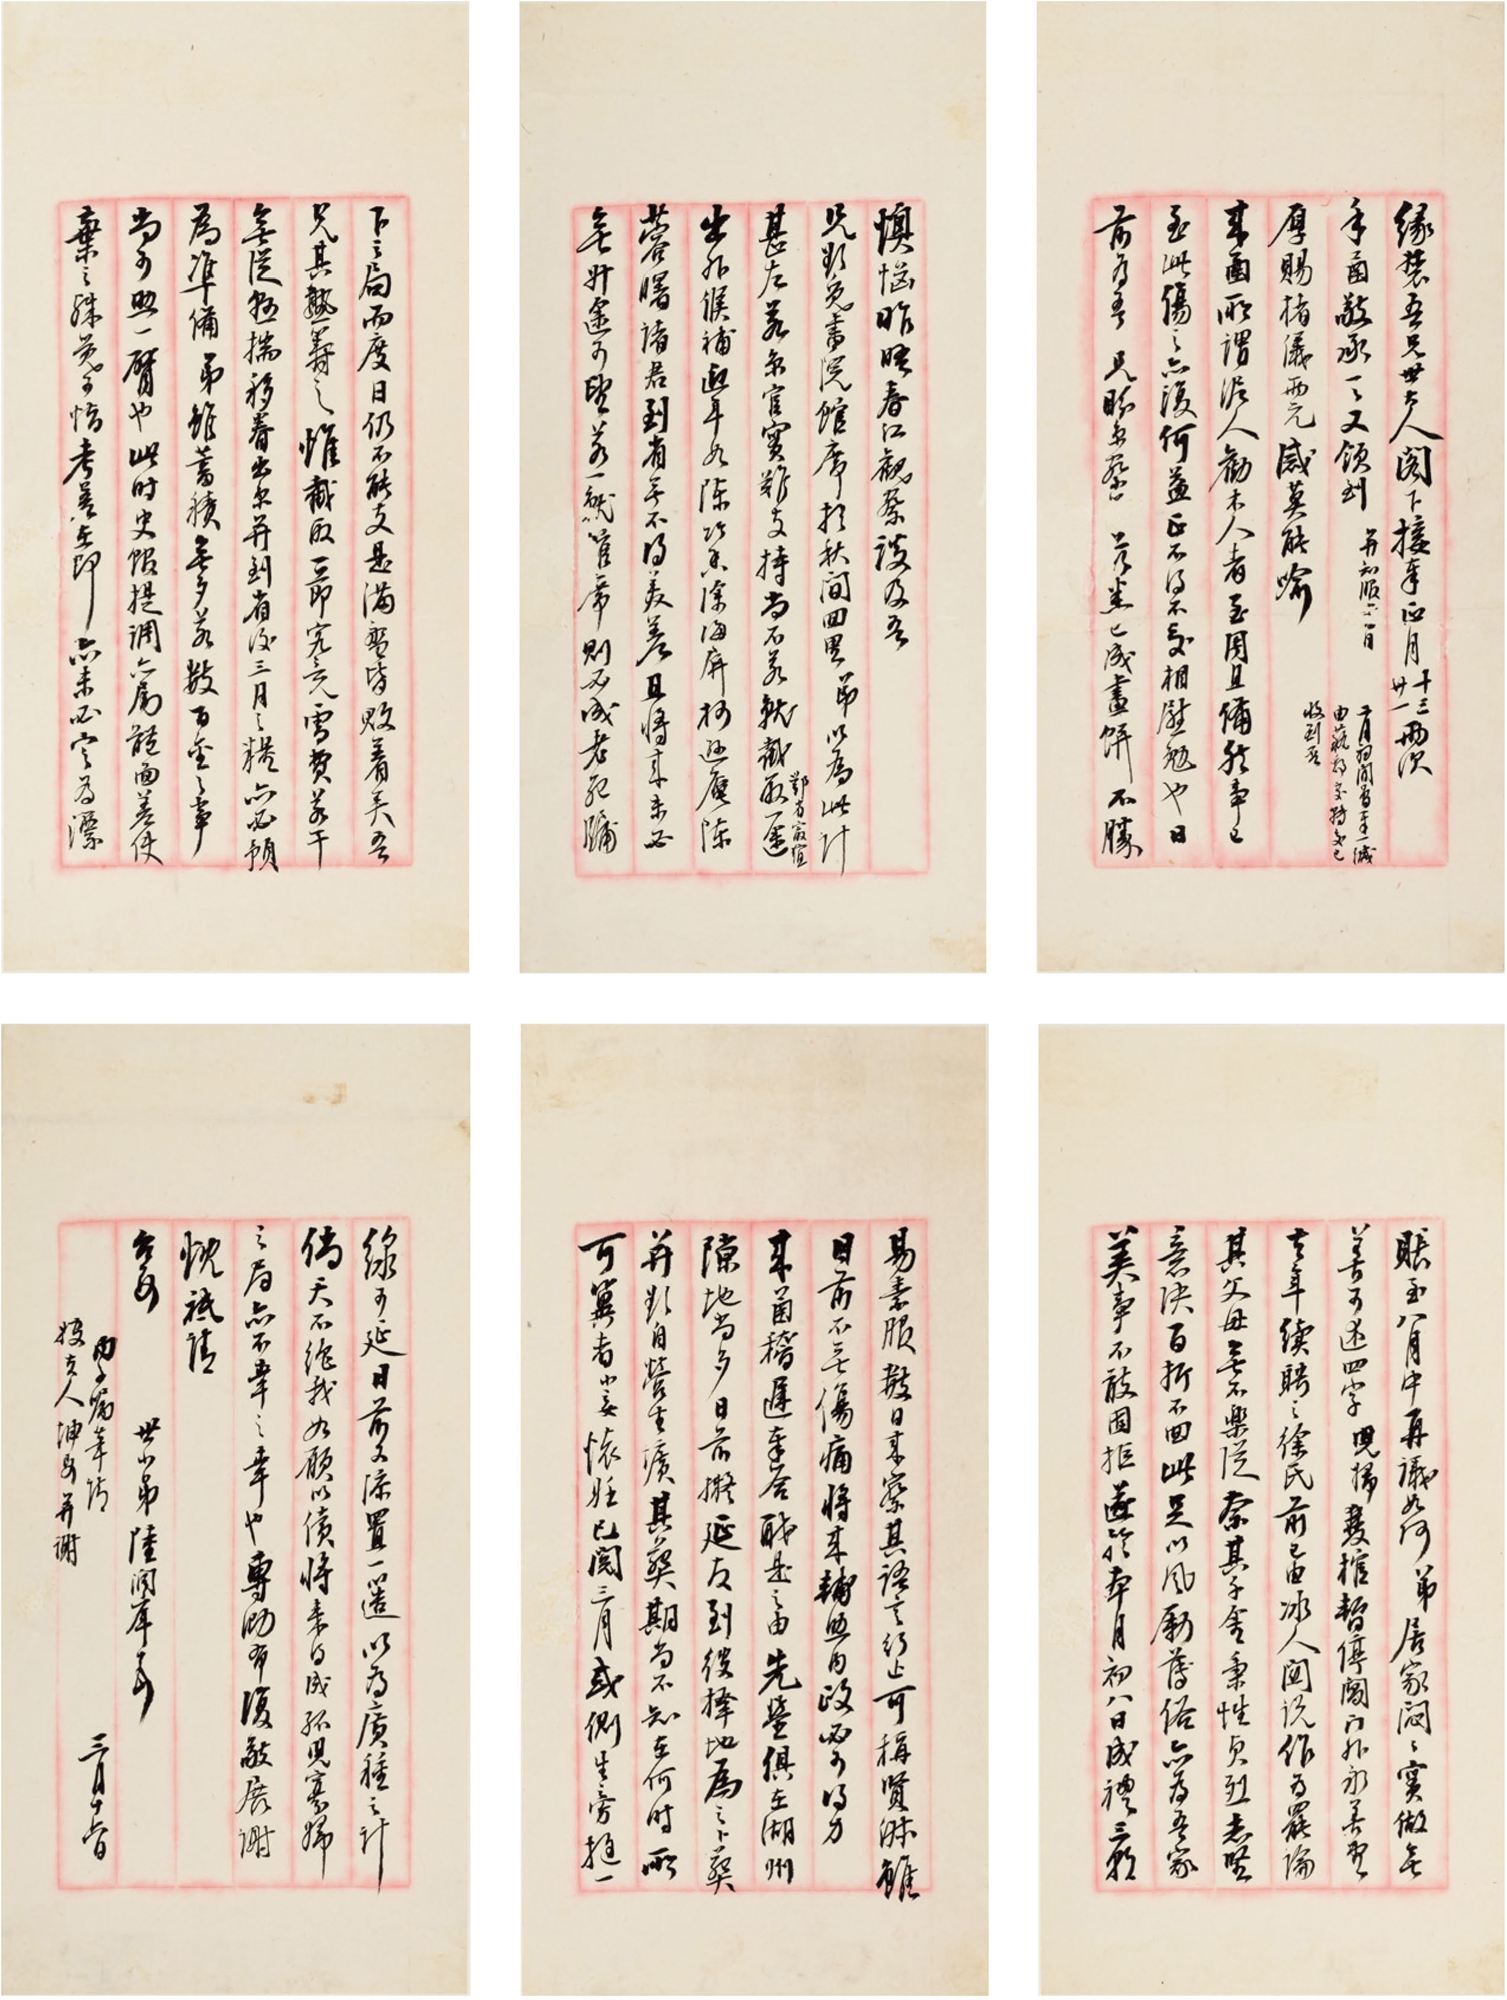 緣督吾兄世大人閣下接奉正月十三廿一兩次
手函敬承一一又領到
厚賜楮儀兩元感莫能喻
二月初間曾上一緘
收到否
來函所謂泥人勸木人者至周且備然事已
至此傷之亦復何益正不得不交相慰勉也日
前為吾兄盼京察已成畫餅不勝
懊惱昨晤春江觀察談及吾
兄欲覓書院館席於秋間回里弟以為此計
甚左若京官實難支持尚不若就截取一途
出外候補近年如陳
蓉曙諸君到省無不得美差且將來未必
無升途可望若一就館席則必成老死牖
下之局而度日仍不能支是滿盤皆敗著矣吾
兄其熟籌之惟截取一節究竟需費若干
無從懸揣移眷出京并到省後三月之糧亦必預
為準備弟雖蓄積無多若數百金之事
尚可助一臂也此時史館提調亦屬體面差使
棄之殊覺可惜考差在即亦未必定為漂
賬至八月中再議如何弟居家悶悶實做無
善可述四字現擬雙棺暫停閶門外永善堂
去年續聘之徐氏前已由冰人關說作為罷論
其父母無不樂從奈其子舍秉性貞烈志堅
意決百折不回此足以風勵薄俗亦為吾家
美事不敢固拒遂於本月初八日成禮三朝
易素服數日來察其語言行止可稱賢淑雖
目前不無傷痛將來輔照內政必可得力
來函稽遲奉答職是之由先塋俱在湖州
隙地尚多日前擬延友到彼擇地為之卜葬
并欲自營生壙其葬期尚不知在何時所
可冀者小妾懷妊已閱三月或側生旁挺一
線可延目前又添置一簉以為廣種之計
倘天不絕我如願以償將來得成孤兒寡婦
之局亦不幸之幸也專泐布復敬展謝
忱祗請
世小弟陸潤庠
內子囑筆請
嫂夫人坤安并謝
三月十六日